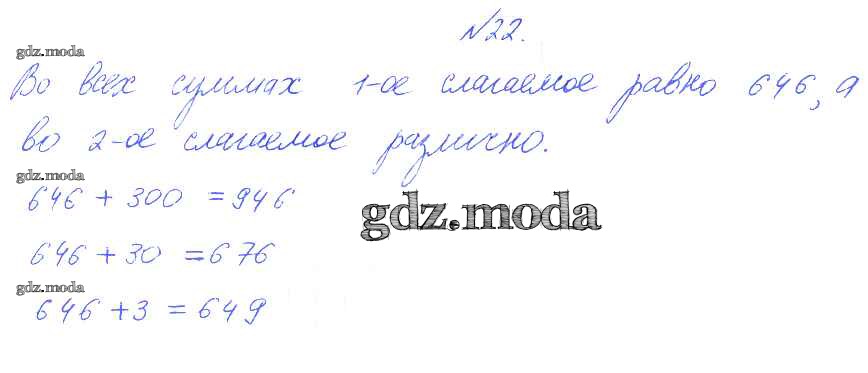 №22.
gdz.moda
Во всех суммах 1-ое слагаемое равно 646, а
во 2-ое слагаемое различно.
gdz.moda
646 + 300 = 946
gdz.moda
646 + 30 = 676
gdz.moda
646 + 3 = 649